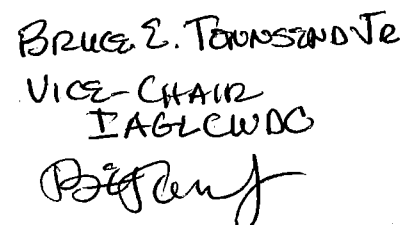 BRUCE E. TOWNSEND JR
VICE-CHAIR
IAGLCWDC